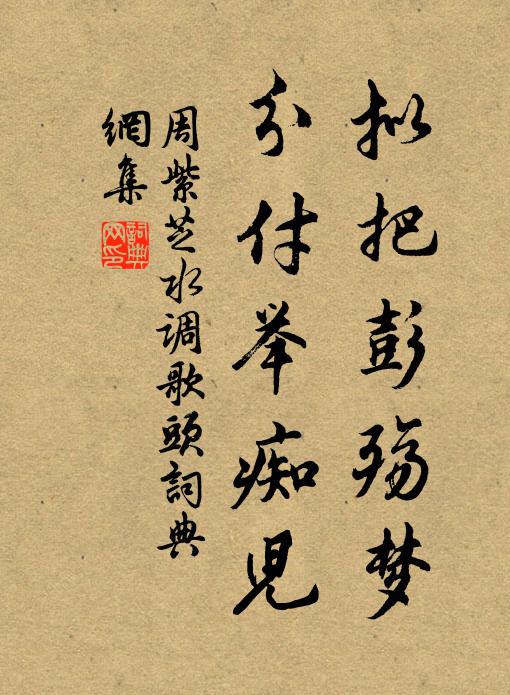 拟把彭殇梦
分付举痴児
周紫芝水调歌头詞典
網集
詞典网印